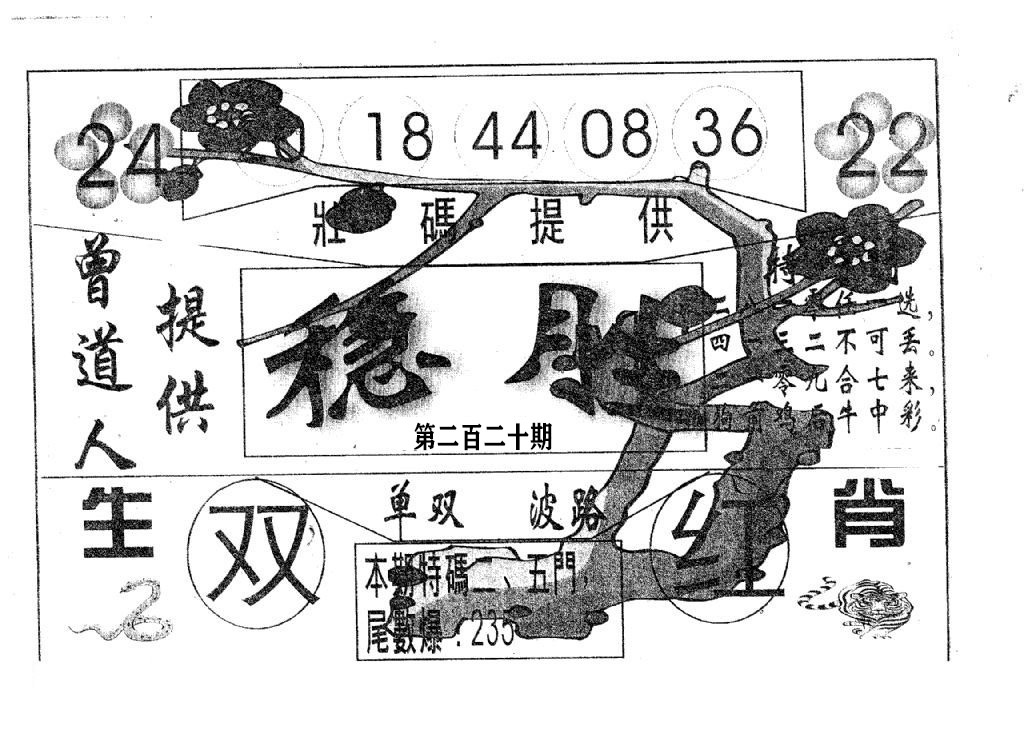 24
18 44 08 36
22
壯碼提供
曾道人
提供
特
稳胜
选，
四一三二不可丢。
零九合七来，
狗前鸡后牛中彩。
第二百二十期
单双 波路
生
双
红
肖
本期特碼二、五門
尾數爆：235